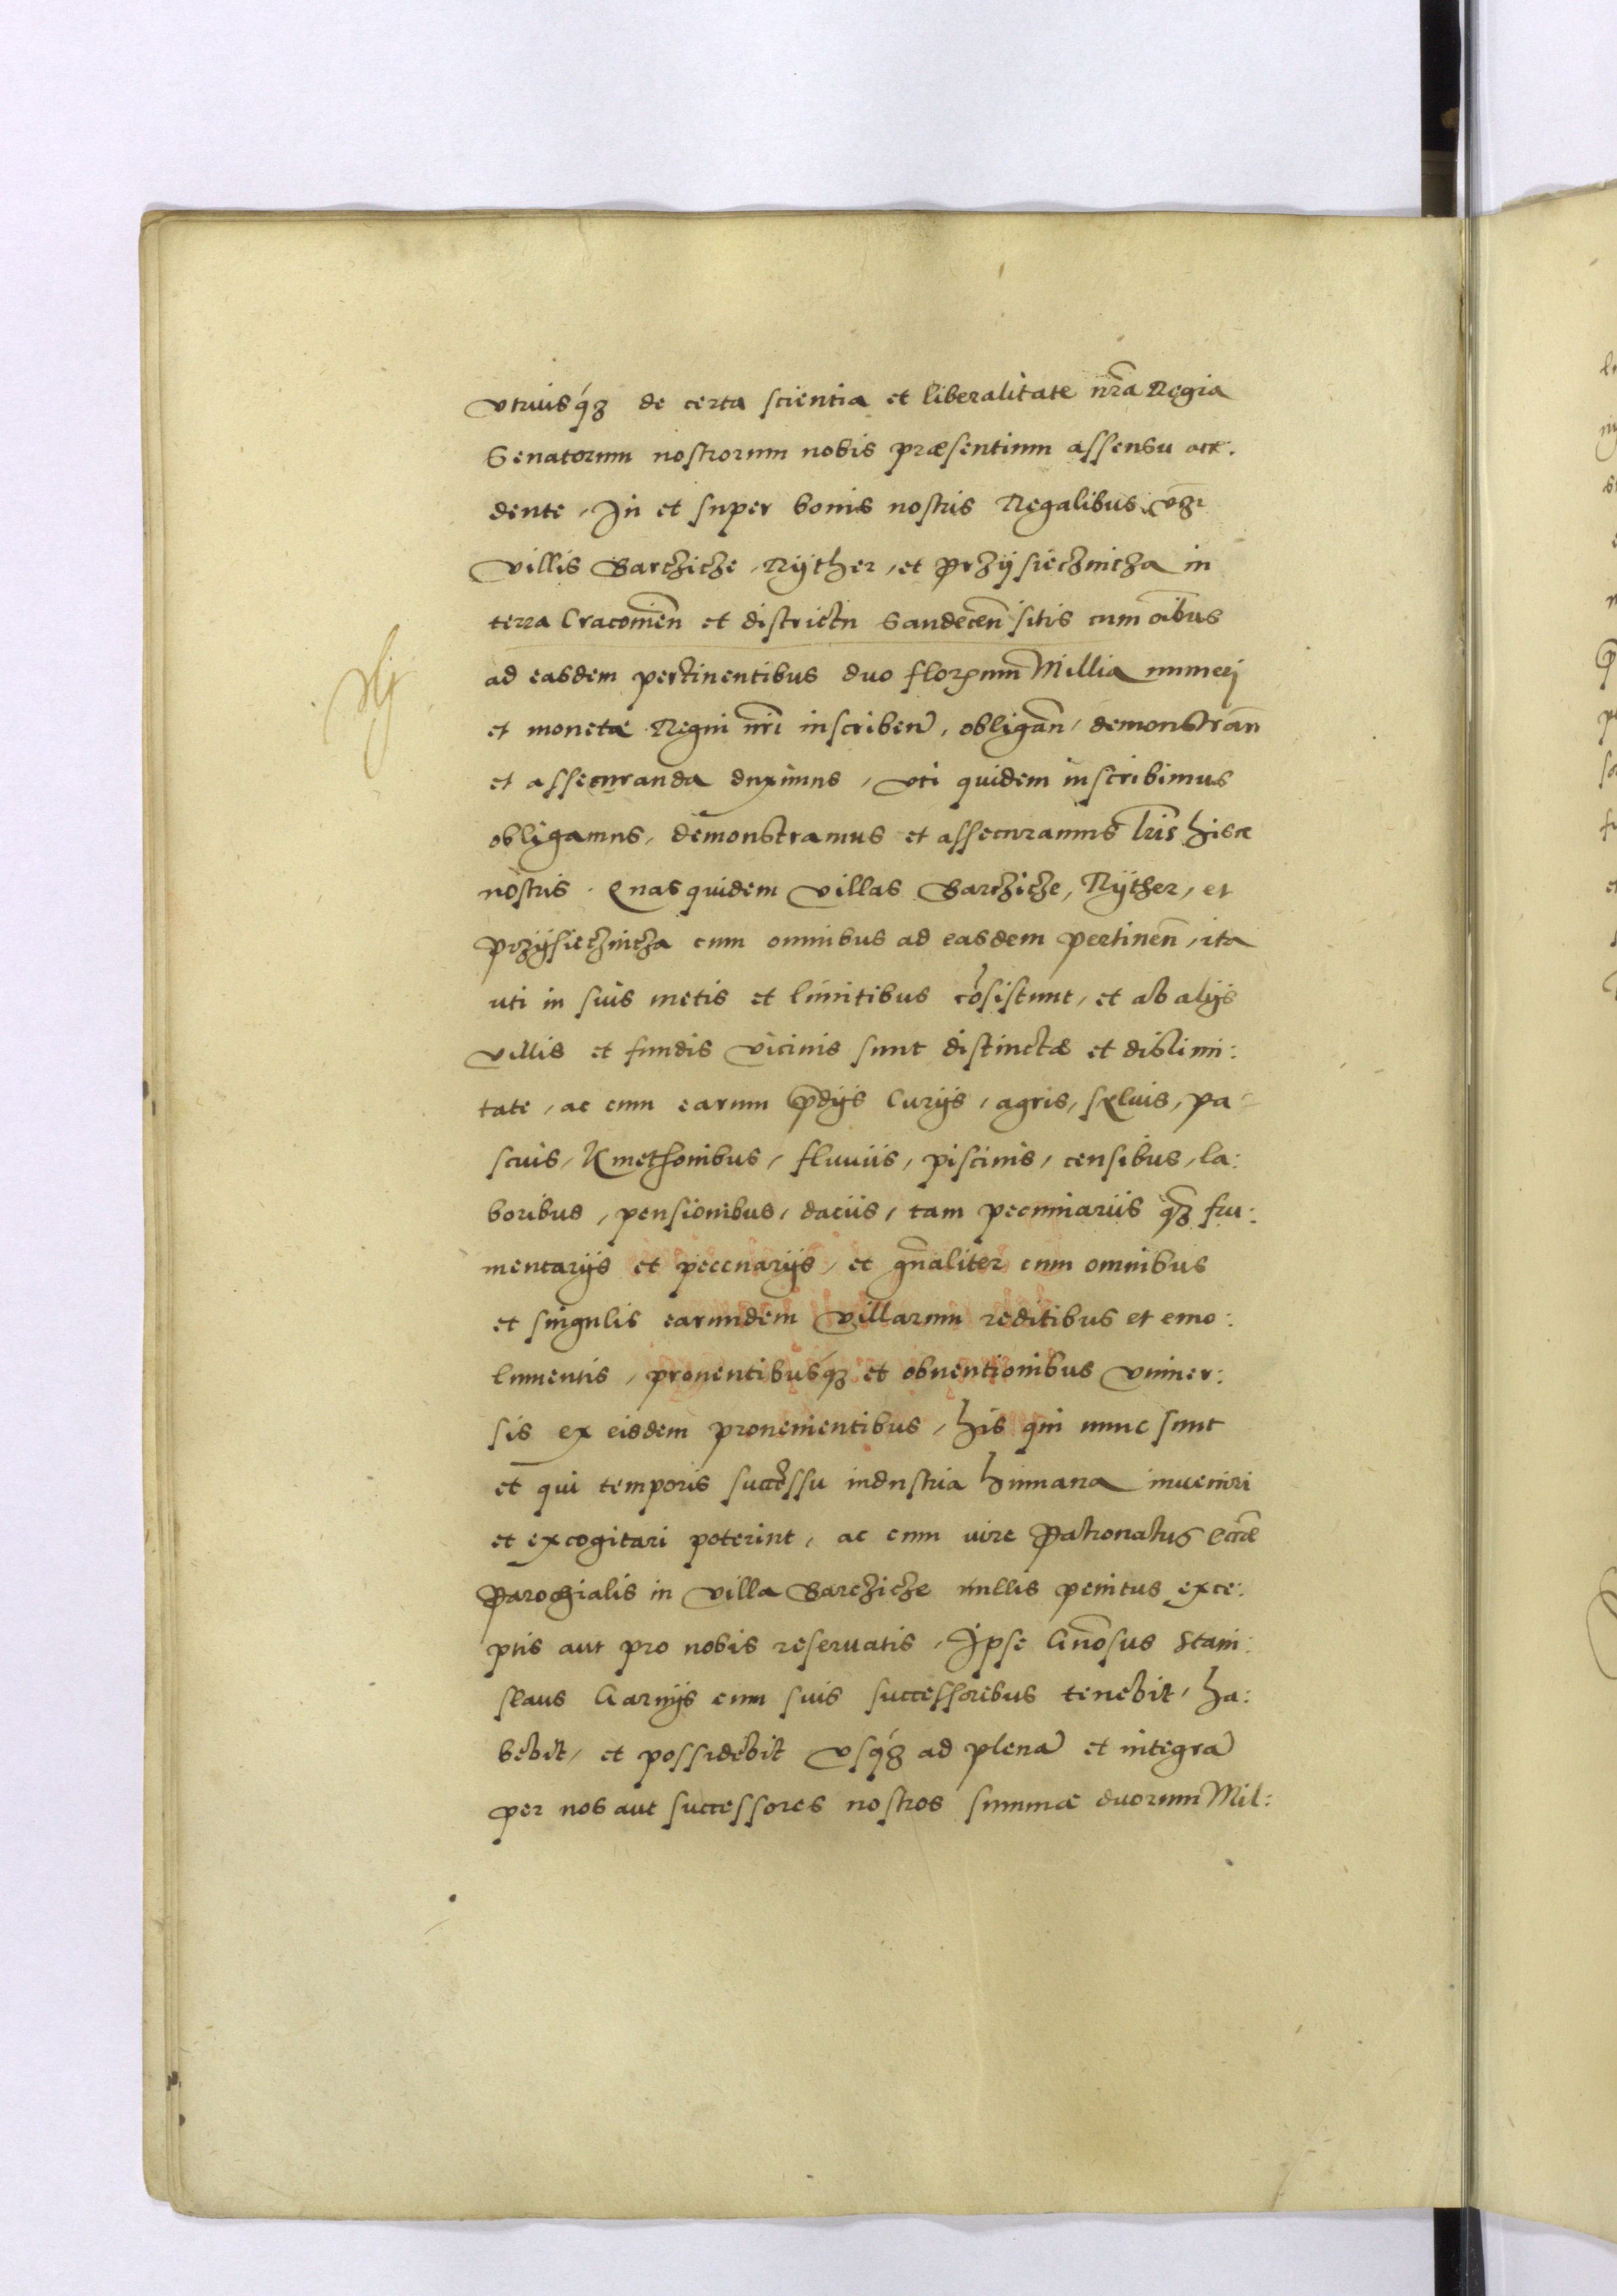 vtriusq́ꝫ de certa scientia et liberalitate nr̃a Regia
Senatorum nostrorum nobis præsentium assensu acce:
dente, In et super bonis nostris Regalibus vꝫ
villis Barczicze, Ryther, et Przysiecznicza in
terra Cracouien̄ et districtu Sandecen̄ sitis cum oībus
ad easdem pertinentibus duo floꝝenum Millia numeri
et monetæ Regni nr̃i inscriben̄, obligan̄, demonstran̄
et assecuranda duximus, vti quidem inscribimus
obligamus, demonstramus et assecuramus lr̃is hisce
nostris. Quas quidem villas Barczicze, Ryther, et
Przysiecznicza cum omnibus ad easdem pertinen̄, ita
uti in suis metis et limitibus cōsistunt, et ab alijs
villis et fundis vicinis sunt distinctæ et dislimi:
tate, ac cum earum p̄dijs Curijs, agris, syluis, pa-
scuis, Kmethonibus, fluuiis, piscinis, censibus, la:
boribus, pensionibus, daciis, tam pecuniariis q̃ꝫ fru:
mentarijs et pecenarijs, et gn̄aliter cum omnibus
et singulis earundem villarum reditibus et emo:
lumentis, prouentibusq́ꝫ et obuentionibus vniuer:
sis ex eisdem prouenientibus, his qui nunc sunt
et qui temporis successu industria humana inueniri
et excogitari poterint, ac cum iure Patronatus eccl̃æ
Parochialis in villa Barczicze nullis penitus exce:
ptis aut pro nobis reseruatis. Ipse Gn̄osus Stani:
slaus Garnijs cum suis successoribus tenebit, ha:
bebit, et possidebit vsq́ꝫ ad plenā et integrā
per nos aut successores nostros summæ duorum Mil: